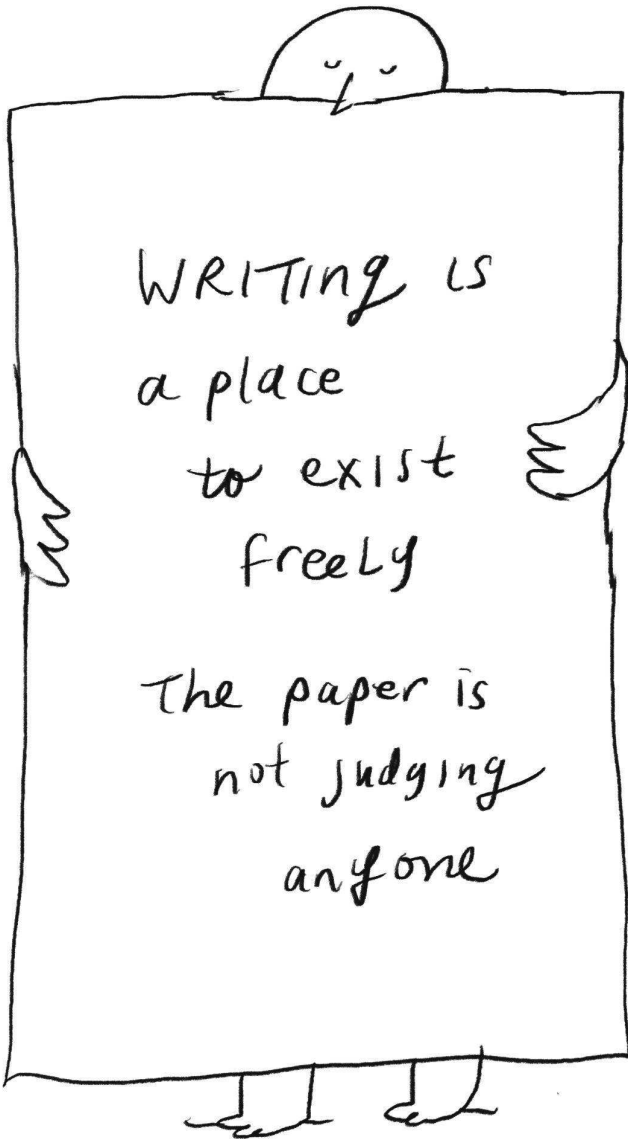 WRITING is
a place
to exist
freely
The paper is
not judging
anyone